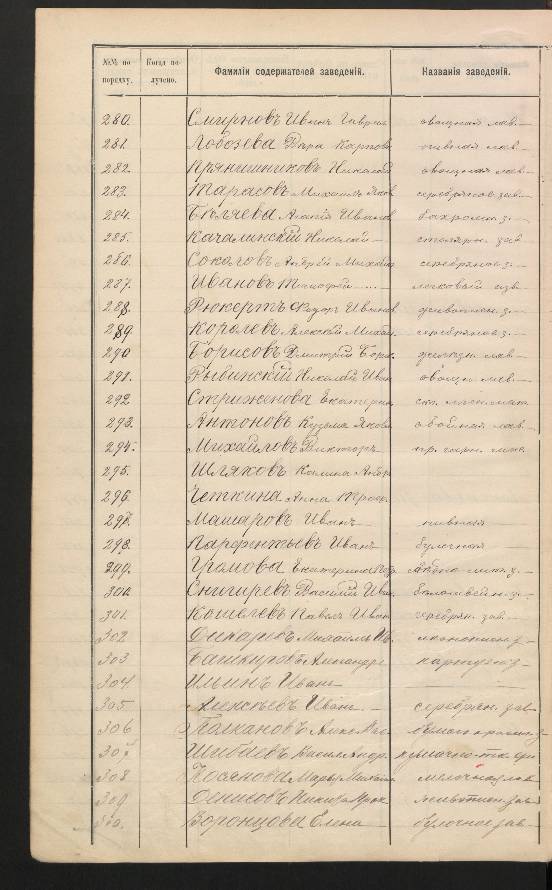 №№ по порядку. Когда получено. Фамиліи содержателей заведеній. Названія заведеній.
280. Смирновъ Иванъ Гаврил овощная лав.
281. Лобозева Дарья Карпов пивная лав.
282. Прянишниковъ Николай овощная лав.
283. Тарасовъ Михаилъ Яков серебряное зав.
284. Бѣляева Агапія Иванов бахромн. з.
285. Качалинскій Николай столярн. зав
286. Соколовъ Андрей Михайл серебряное з.
287. Ивановъ Тимофей легковый изв.
288. Рюкертъ Федоръ Иванов живописн. з.
289 Королевъ Алексѣй Михаи. серебряное з.
290 Борисовъ Дмитрій Борис. желѣзн. лав
291. Рыбинскій Николай Иван овощн. лав.
292 Стриженова Екатерина
293. Антоновъ Кузьма Яков обойная лав.
294. Михайловъ Викторъ
295. Шляковъ Андр
296 Четкина Анна
297. Машаровъ Иванъ пивная
298. Парфентьевъ Иванъ булочная
299. Громова Екатерина
300. Снигиревъ Василій Иван.
301. Кошелевъ Павелъ Иван серебрян. зав.
302 Дикаревъ Михаилъ Ив. иконописн. з
303 Башкировъ Александръ картузн. з
304. Ильинъ Иванъ
305 Алексѣевъ Иванъ серебрян. зав
306 Полкановъ Алексѣй
307 Шибаевъ Васил Андр.
308 Посянова Марья Михаил мелочная лав
309 Денисовъ Никита живописн. зав
310. Воронцова Елена булочное зав